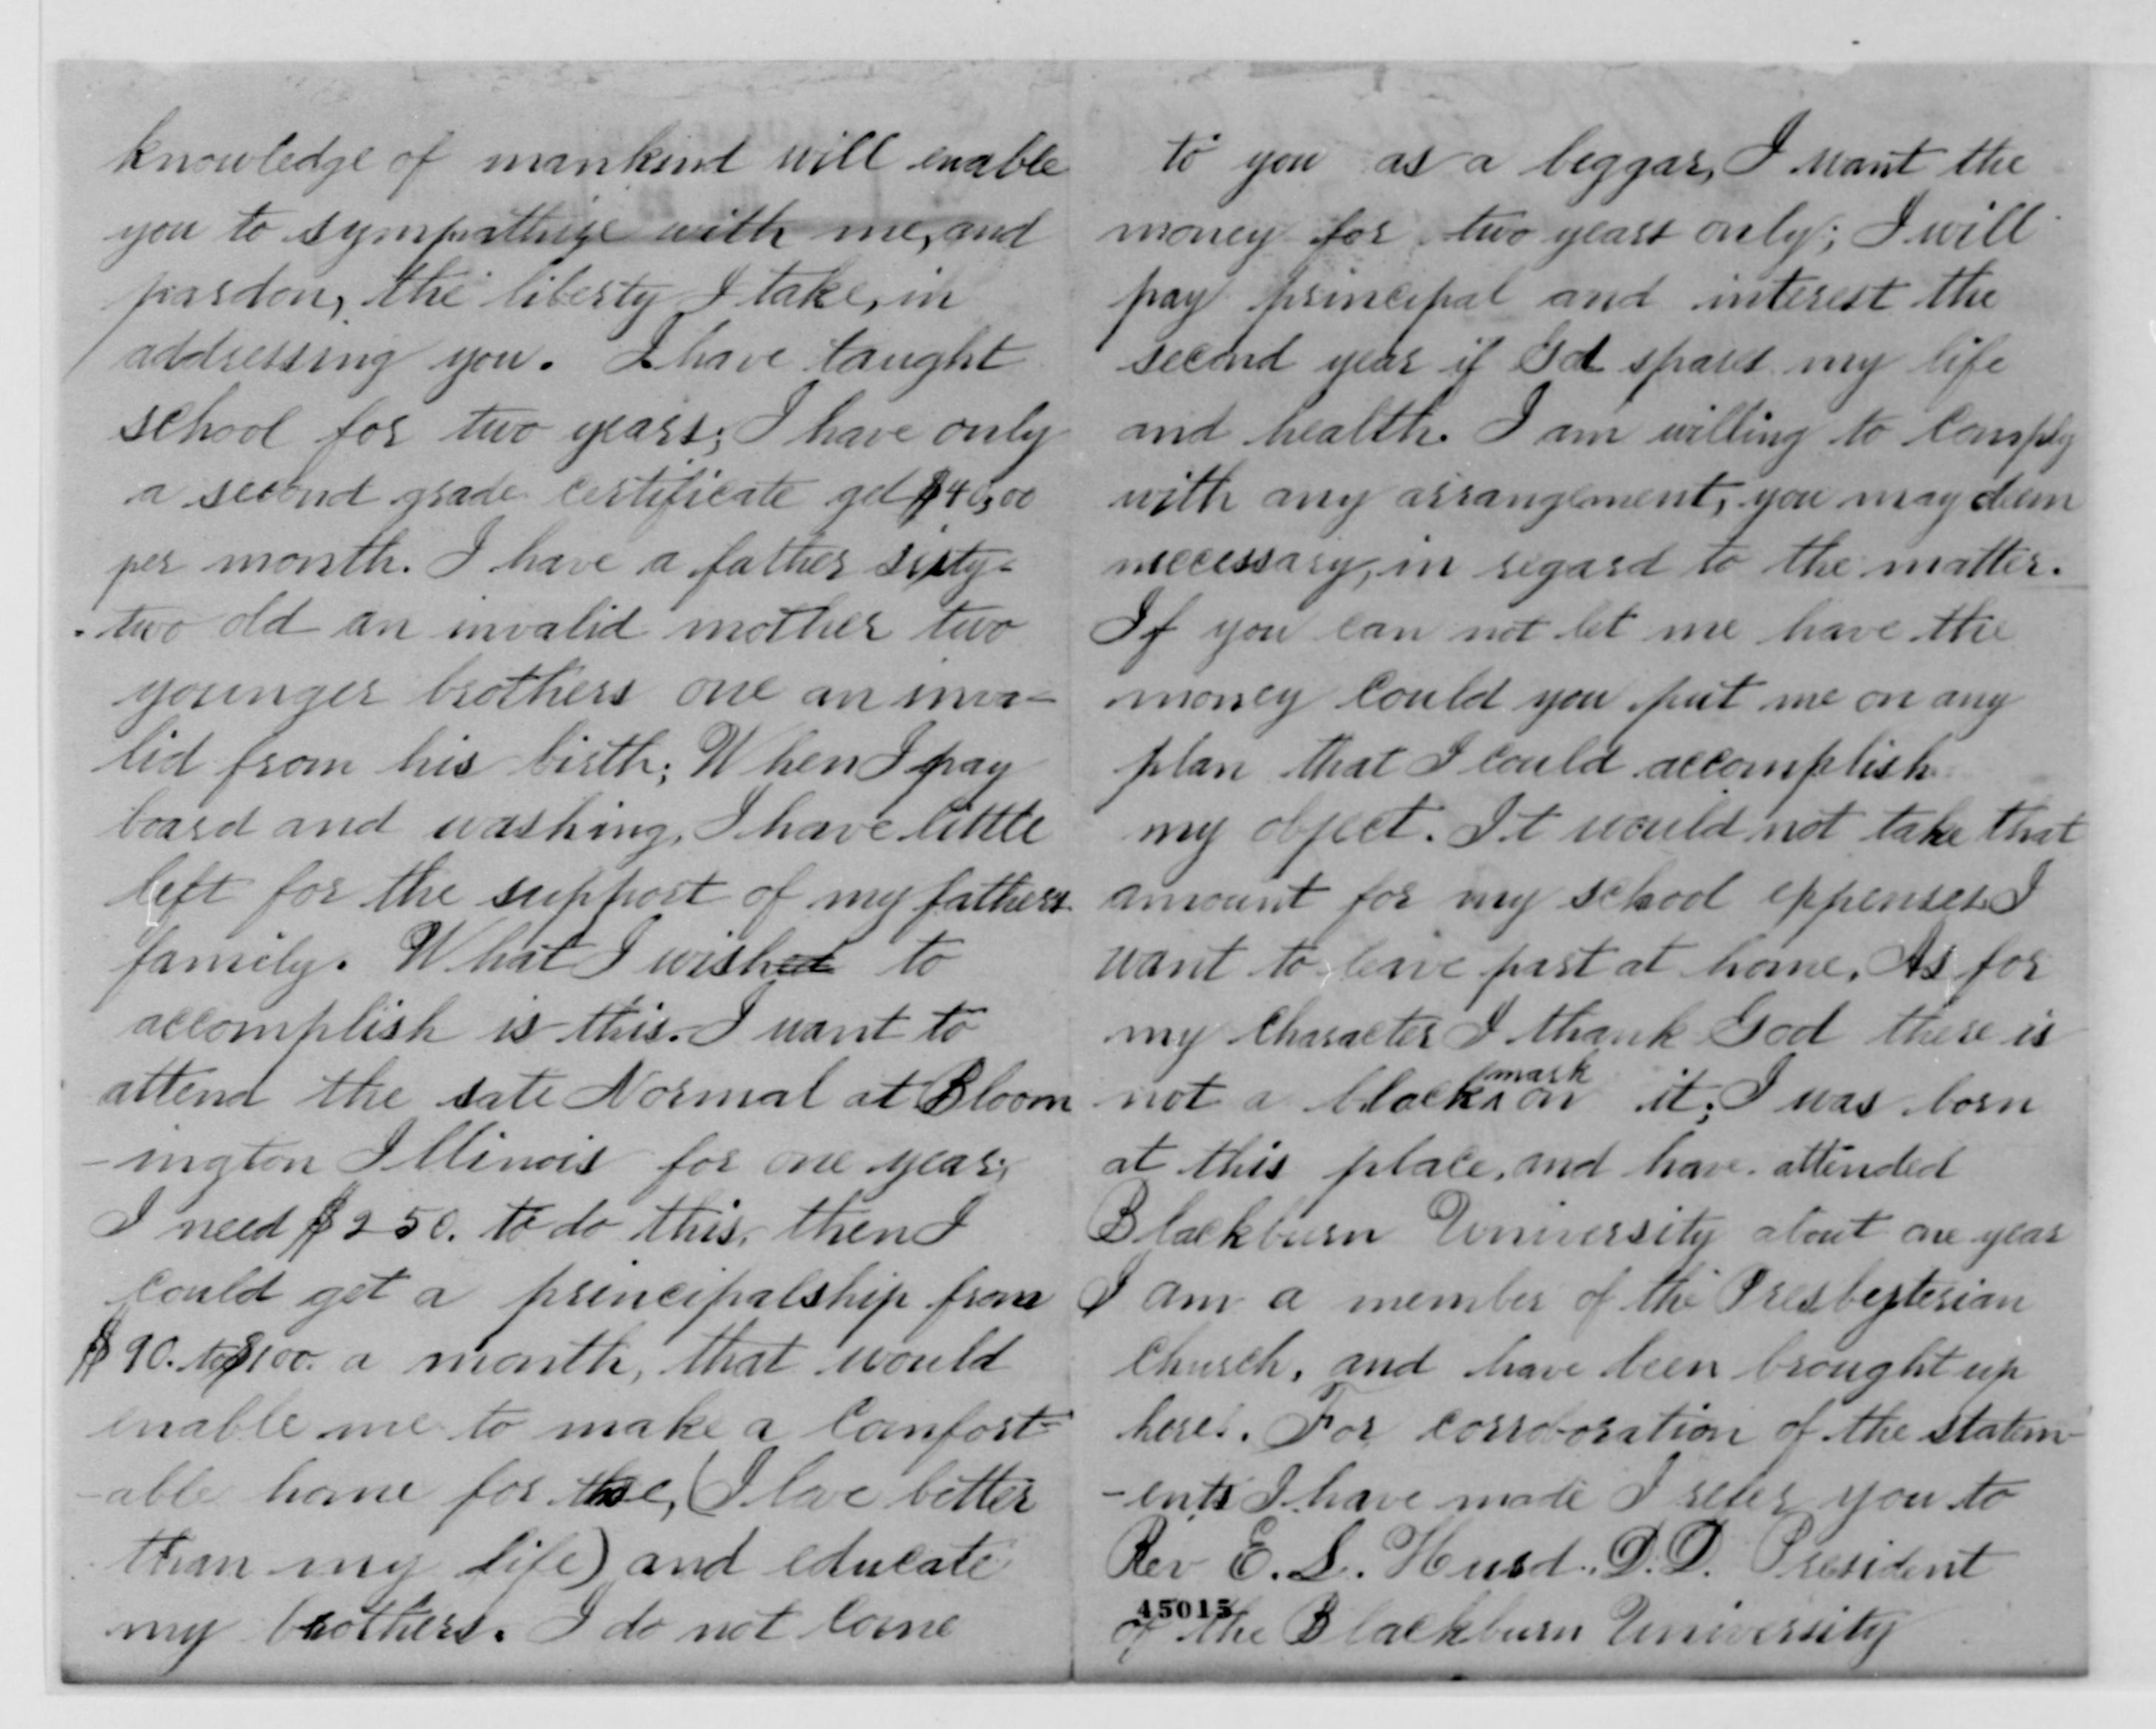 knowledge of mankind will enable
you to sympathize with me, and
pardon, the liberty I take, in
addressing you. I have taught
school for two years; I have only
a second grade certificate get $40,00
per month. I have a father sixty-
two old an invalid mother two
younger brothers one an inva-
lid from his birth; When I pay
board and washing, I have little
left for the support of my fathers
family. What I wished to
accomplish is this. I want to
attend the sate Normal at Bloom
-ington Illinois for one year;
I need $250. to do this, then I
could get a principalship from
$90. to $100. a month, that would
enable me to make a comfort-
-able home for those, (I love better
than my life) and educate
my brothers. I do not come
to you as a beggar, I want the
money for two years only; I will
pay principal and interest the
second year if God spares my life
and health. I am willing to comply
with any arrangement, you may deem
neccessary, in regard to the matter.
If you can not let me have the
money could you put me on any
plan that I could accomplish
my object. It would not take that
amount for my school expenses I
want to leave part at home. As for
my character I thank God there is
not a black mark on it; I was born
at this place, and have attended
Blackburn University about one year
I am a member of the Presbyterian
church, and have been brought up
here. For corroboration of the statem-
-ents I have made I refer you to
Rev E. L. Hurd. D.D. President
45015
of the Blackburn University